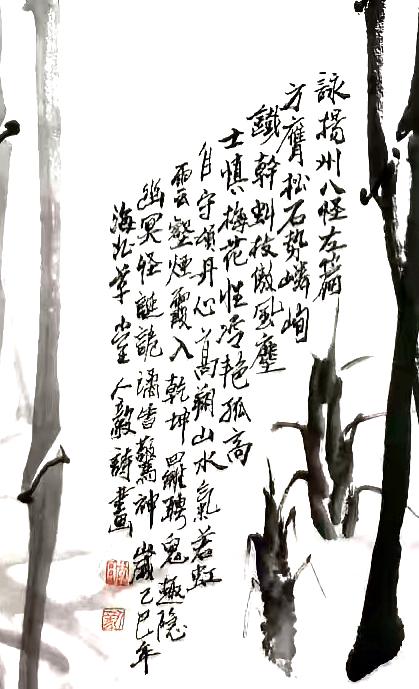 詠揚州八怪左篇
方膺松石勢嶙峋
鐵幹虯枝傲風塵
士慎梅花性冷艳孤高
自守丹心高翔山水氣若虹
雲壑煙霞入乾坤羅聘鬼趣隐
幽冥怪誕詭譎皆驚神歲乙巳年
海草堂人毅詩畫